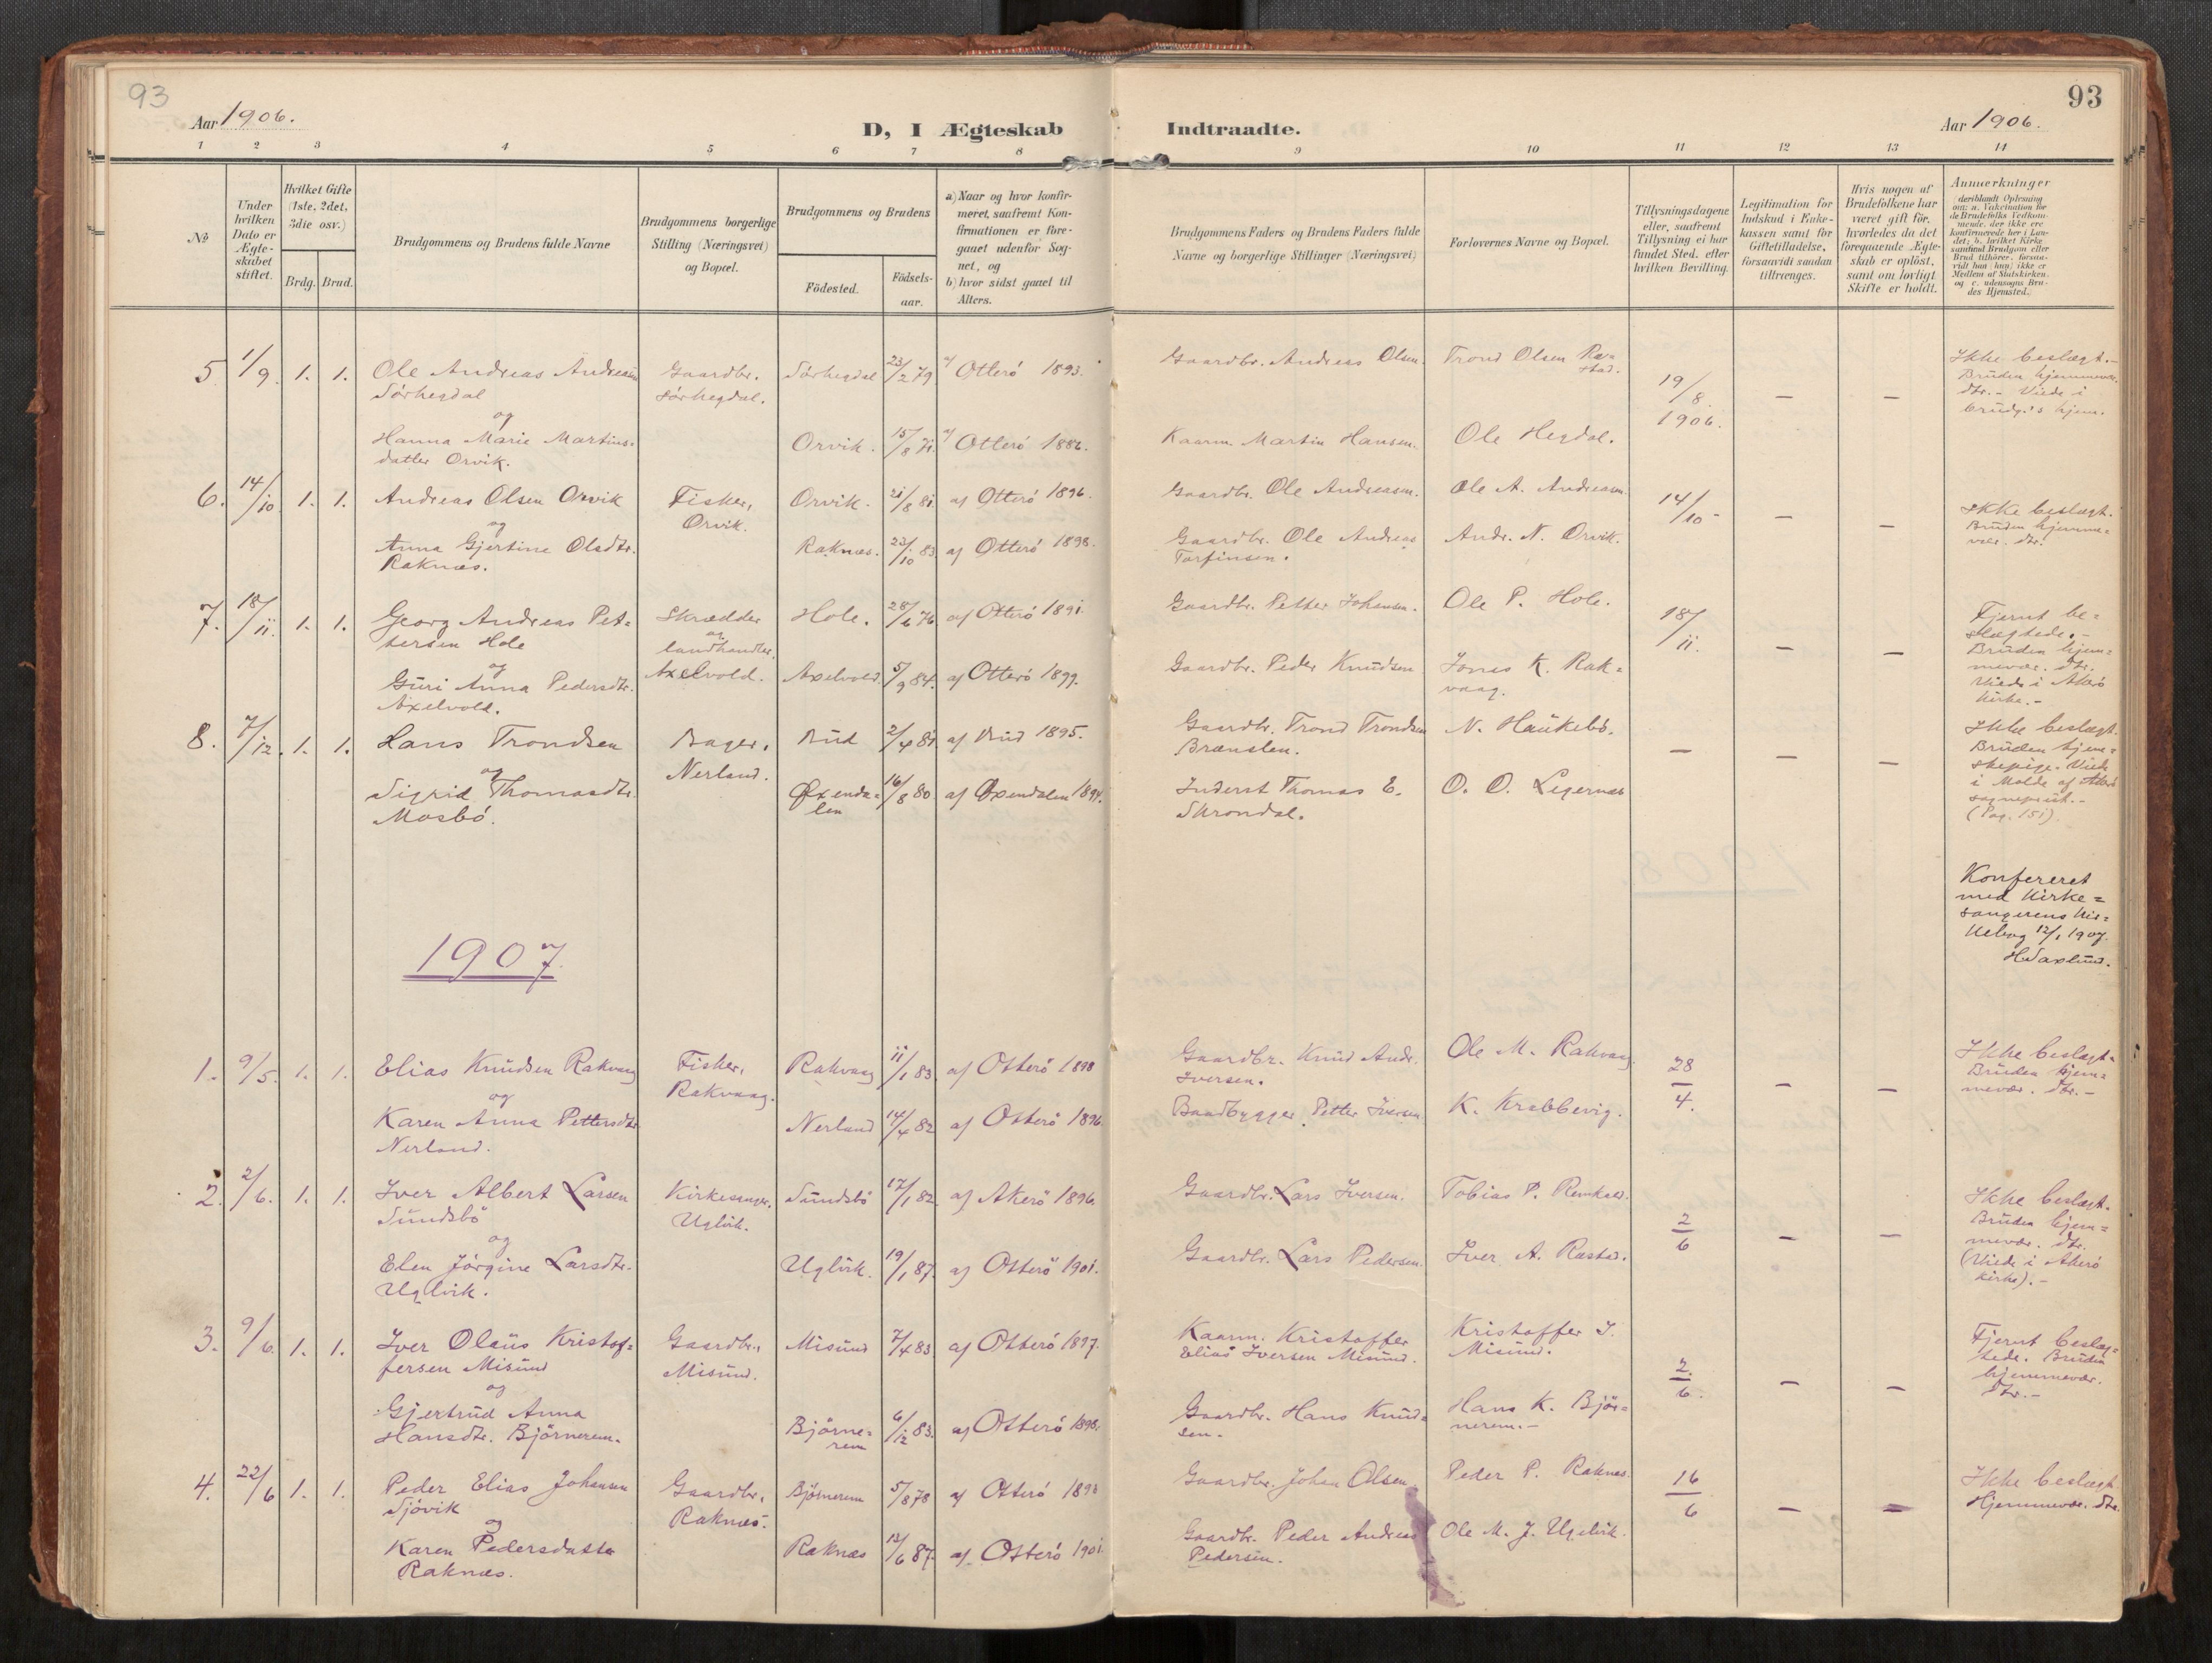 93
Aar 1906.
D, I Ægteskab
Indtraadte.
Aar 1906.
93
1 2 3 4 5 6 7 8 9 10 11 12 13 14
No
Under
hvilken
Dato er
Ægte-
skabet
stiftet.
Hvilket Gifte
(1ste, 2det,
3die osv.)
Brdg. Brud.
Brudgommens og Brudens fulde Navne
Brudgommens borgerlige
Stilling (Næringsvei)
og Bopæl.
Brudgommens og Brudens
Födested.
Födsels-
aar.
a) Naar og hvor konfir-
meret, saafremt Kon-
firmationen er fore-
gaaet udenfor Sog-
net, og
b) hvor sidst gaaet til
Alters.
Brudgommens Faders og Brudens Faders fulde
Navne og borgerlige Stillinger (Næringsvei)
Forlovernes Navne og Bopæl.
Tillysningsdagene
eller, saafremt
Tillysning ei har
fundet Sted, efter
hvilken Bevilling.
Legitimation for
Indskud i Enke-
kassen samt for
Giftetilladelse,
forsaavidt saadan
tiltrænges.
Hvis nogen af
Brudefolkene har
været gift för,
hvorledes da det
foregaaende Ægte-
skab er oplöst,
samt om lovligt
Skifte er holdt.
Anmerkninger
(deriblandt Oplysning
om: a. Vakcination for
de Brudefolks Vedkom-
mende, der ikke ere
konfirmerede her i Lan-
det; b. hvilket Kirke-
samfund Brudgom eller
Brud tilhörer, forsaa-
vidt han (hun) ikke er
Medlem af Statskirken,
og c. udensogns Bru-
des Hjemsted.
5. 1/9. 1. 1. Ole Andreas Andreasen
Sörhegdal
og
Hanna Marie Martins-
datter Orvik.
Gaardbr.
Sörhegdal.
Sörhegdal 23/2 79 af Otterö 1893.
Orvik. 15/8 71. af Otterö 1886.
Gaardbr. Andreas Olsen.
Kaarm. Martin Hansen.
Trond Olsen Ra-
stad.
Ole Hegdal.
19/8 1906. — —
Ikke beslægt.-
Bruden hjemmevær.
dtr.- Viede i
brudg.'s hjem.
6. 14/10. 1. 1. Andreas Olsen Orvik
og
Anna Gjertine Olsdtr.
Raknæs.
Fisker,
Orvik.
Orvik. 21/8 81. af Otterö 1896.
Raknæs. 23/10 83 af Otterö 1898.
Gaardbr. Ole Andreasen.
Gaardbr. Ole Andreas
Torfinsen.
Ole A. Andreasen.
Andr. N. Orvik.
14/10 — —
Ikke beslægt.
Bruden hjemme-
vær. dtr.
7. 18/11. 1. 1. Georg Andreas Pet-
tersen Hole
og
Guri Anna Pedersdtr.
Axelvold.
Skrædder
og
landhandler.
Axelvold.
Hole. 28/6 76 af Otterö 1891.
Axelvold. 5/9 84. af Otterö 1899.
Gaardbr. Petter Johansen.
Gaardbr. Peder Knudsen
Ole P. Hole.
Jonas K. Rak-
vaag.
18/11. — —
Fjernt be-
slægtede.-
Bruden hjem-
mevær. dtr.
Viede i Akerö
Kirke.-
8. 7/12. 1. 1. Hans Trondsen
og
Sigrid Thomasdtr.
Mosbö.
Bager,
Nerland.
Bud 2/4 81 af Bud 1895.
Öxenda-
len 16/8 80 af Öxendalen 1894.
Gaardbr. Trond Trondsen
Brænslen.
Inderst Thomas E.
Skrondal.
N. Haukebö.
O. O. Legernæs
— — —
Ikke beslægt.
Bruden tjene-
stepige. Viede
i Molde af Akerö
sogneprest.-
(Pag. 151).
Konfereret
med Kirke-
sangerens Kir-
kebog 12/1 1907.
H Saxlund.
1907.
1. 9/5. 1. 1. Elias Knudsen Rakvaag
og
Karen Anna Pettersdtr
Nerland.
Fisker,
Rakvaag.
Rakvaag 11/1 83. af Otterö 1898
Nerland 14/4 82 af Otterö 1896.
Gaardbr. Knud Andr.
Iversen.
Baadbygger Petter Iversen
Ole M. Rakvaag
K. Krabbevig.
28/4. — —
Ikke beslægt.
Bruden hjem-
mevær. dtr.-
2. 2/6. 1. 1. Iver Albert Larsen
Sundsbö
og
Elen Jörgine Larsdtr.
Uglvik.
Kirkesanger,
Uglvik.
Sundsbö 17/1 82. af Akerö 1896.
Uglvik. 19/1 87. af Otterö 1901.
Gaardbr. Lars Iversen.
Gaardbr. Lars Pedersen.
Tobias P. Remkær.
Iver A. Rastad.
2/6 — —
Ikke beslægt.
Bruden hjem-
mevær. dtr.
(Viede i Akerö
Kirke).-
3. 9/6. 1. 1. Iver Olaus Kristof-
fersen Misund
og
Gjertrud Anna
Hansdtr. Björnerem.
Gaardbr.,
Misund.
Misund 7/4 83 af Otterö 1897.
Björne-
rem 6/12 83. af Otterö 1898.
Kaarm. Kristoffer
Elias Iversen Misund.
Gaardbr. Hans Knud-
sen.
Kristoffer I.
Misund.
Hans K. Björ-
nerem.-
2/6. — —
Fjernt beslæg-
tede. Bruden
hjemmevær.
dtr.-
4. 22/6 1. 1. Peder Elias Johansen
Sjövik
og
Karen Pedersdatter
Raknæs.
Gaardbr.
Raknæs.
Björnerem 5/8 78 af Otterö 1893
Raknæs 12/6 87. af Otterö 1901.
Gaardbr. Johan Olsen.
Gaardbr. Peder Andreas
Pedersen.
Peder P. Raknæs.
Ole M. J. Uglvik.
16/6 — —
Ikke beslægt.
Hjemmevær. dtr.